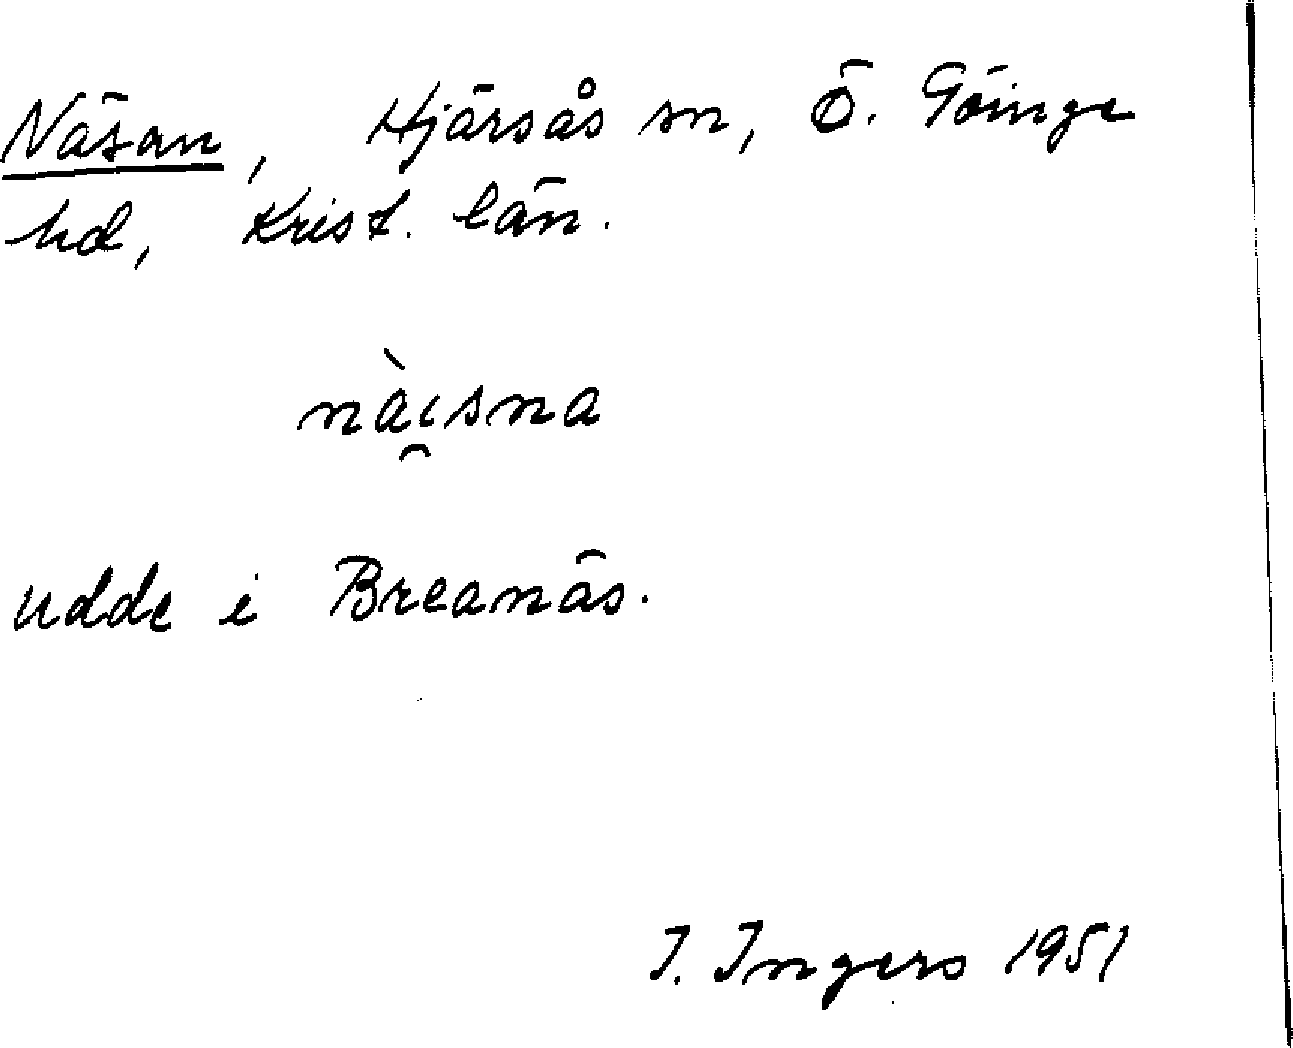 Näsan, Hjärsås sn, Ö. Göinge
hd, Krist. län.
nàısna
udde i Breanäs.
I. Ingers 1951